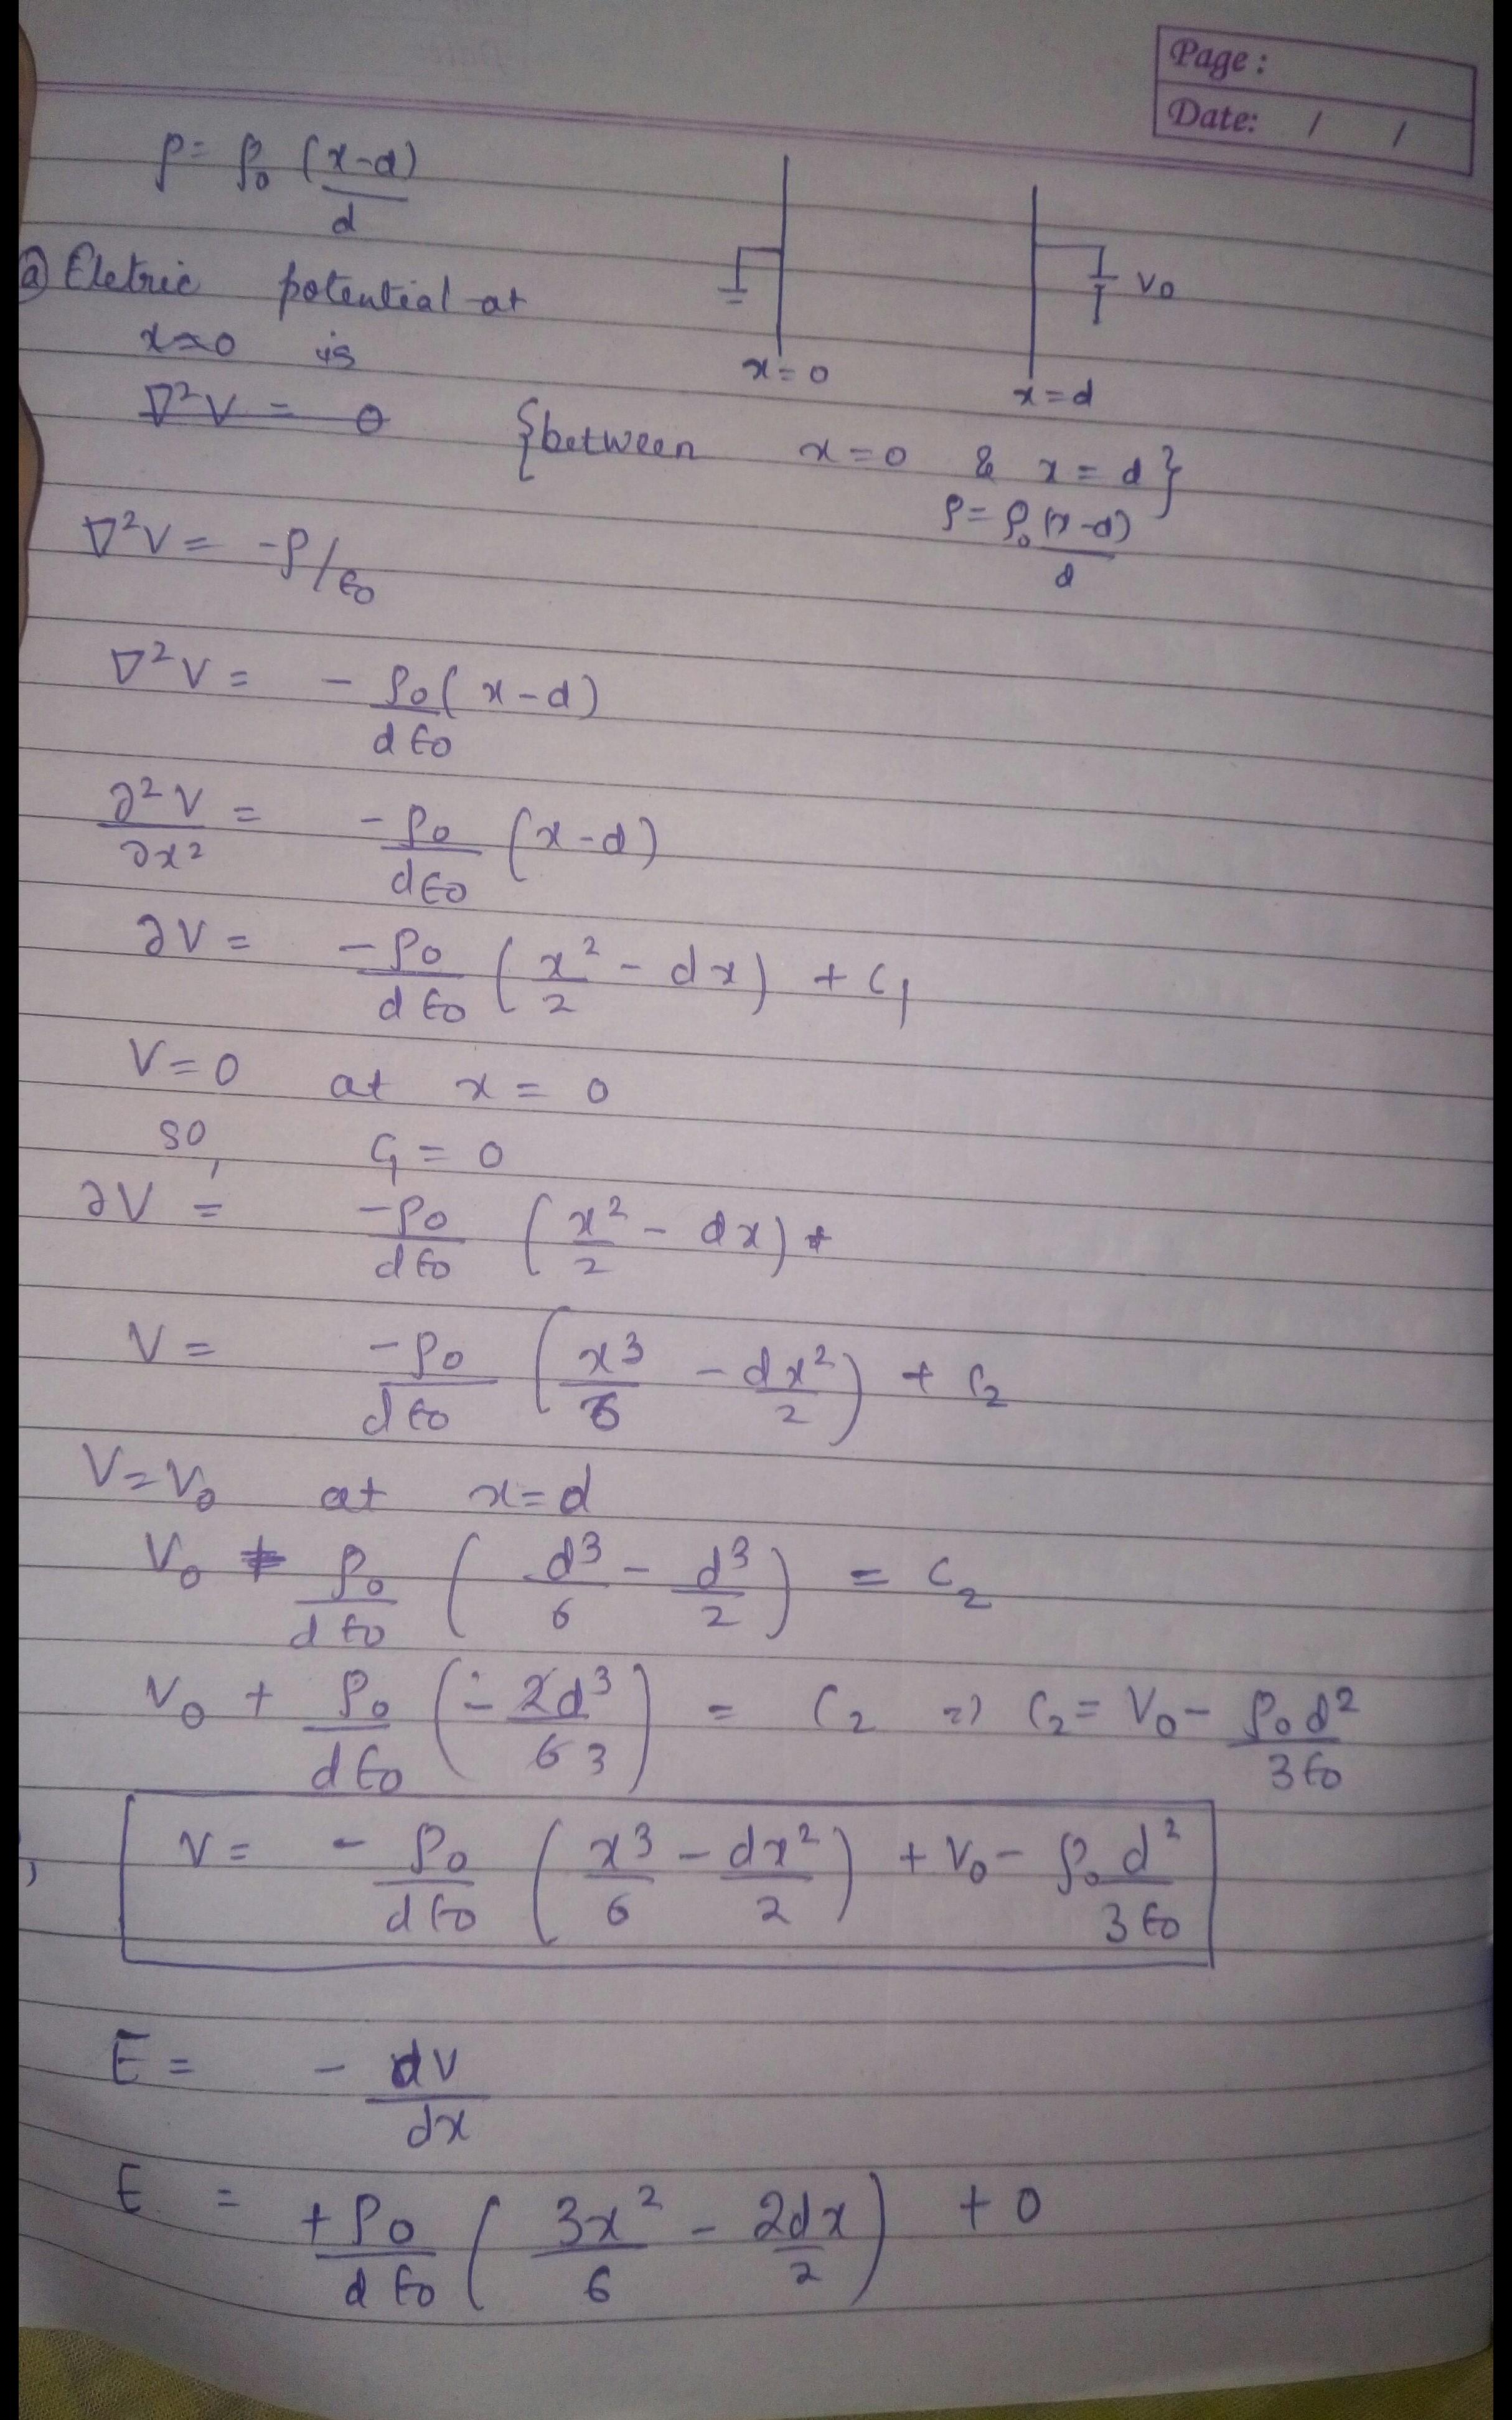 Page :
Date: / /
ρ = ρ₀ (x-d)/d
V₀
x = 0
x = d
(a) Eletric potential at
x=0 is
∇²V = 0 {between x = 0 & x = d}
ρ = ρ₀ (x-d)/d
∇²V = -ρ/ε₀
∇²V = - ρ₀/dε₀ (x-d)
∂²V/∂x² = -ρ₀/dε₀ (x-d)
∂V = -ρ₀/dε₀ (x²/2 - dx) + C₁
V=0 at x = 0
so, C₁ = 0
∂V = -ρ₀/dε₀ (x²/2 - dx) +
V = -ρ₀/dε₀ (x³/6 - dx²/2) + C₂
V=V₀ at x=d
V₀ + ρ₀/dε₀ (d³/6 - d³/2) = C₂
V₀ + ρ₀/dε₀ (-2d³/6 3) = C₂ => C₂ = V₀ - ρ₀d²/3ε₀
, V = - ρ₀/dε₀ (x³/6 - dx²/2) + V₀ - ρ₀d²/3ε₀
E = - dV/dx
E = +ρ₀/dε₀ (3x²/6 - 2dx/2) + 0